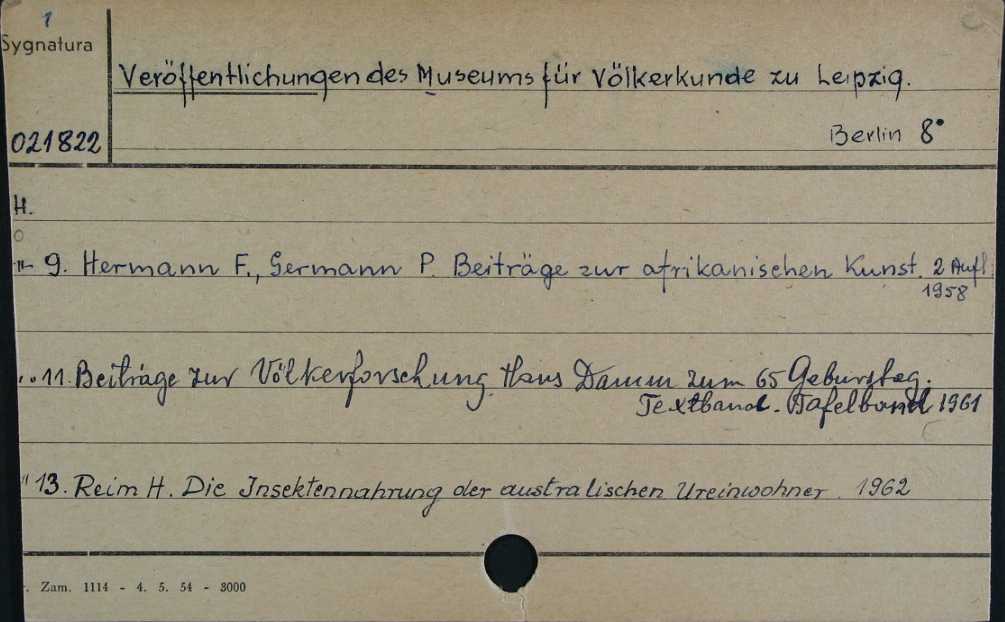 1
Sygnatura
Veröffentlichungen des Museums für Völkerkunde zu Leipzig.
021822
Berlin 8°
H.
9. Hermann F., Germann P. Beiträge zur afrikanischen Kunst. 2 Aufl
1958
11. Beiträge zur Völkerforschung. Hans Damm zum 65 Geburstag.
Textband. Tafelband 1961
" 13. Reim H. Die Insektennahrung der australischen Ureinwohner. 1962
Zam. 1114 - 4. 5. 54 - 3000